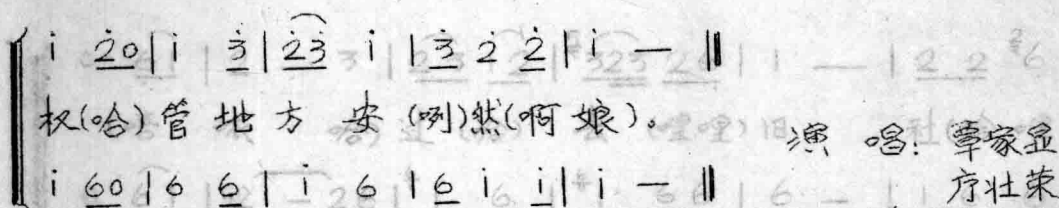 i 20 | i 3 | 23 i | 3 2 2 | i — ‖
权(哈)管 地 方 安 (咧)然(啊 娘)。
演 唱: 覃家显
i 60 | 6 6 | i 6 | 6 i i | i — ‖
序壮荣